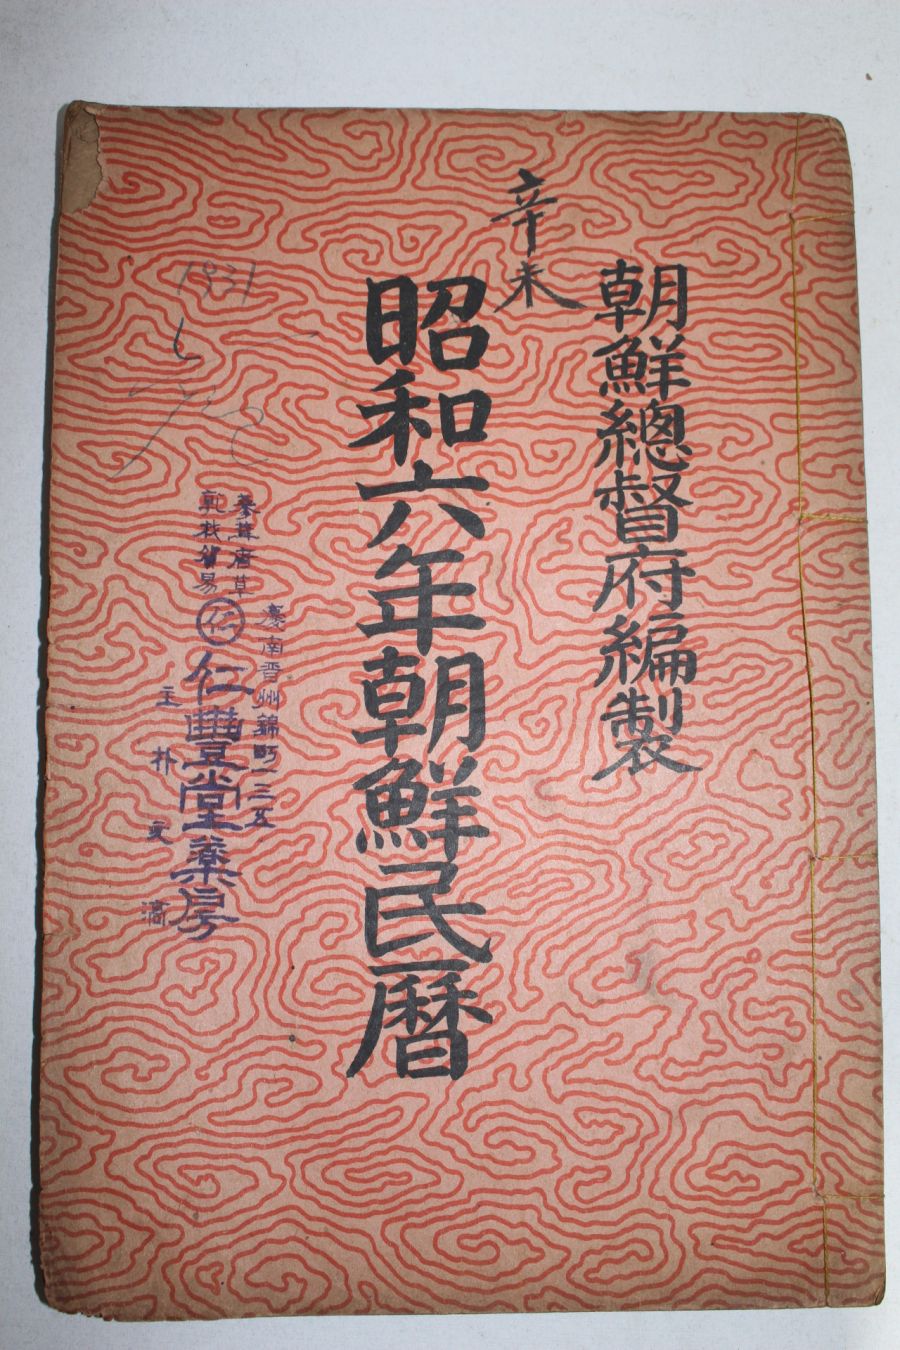 朝鮮總督府編製
辛未
昭和六年朝鮮民曆
1931
慶南晋州錦町一三五
蔘茸唐草
乾材貿易
仁
仁豊堂藥房
主 朴